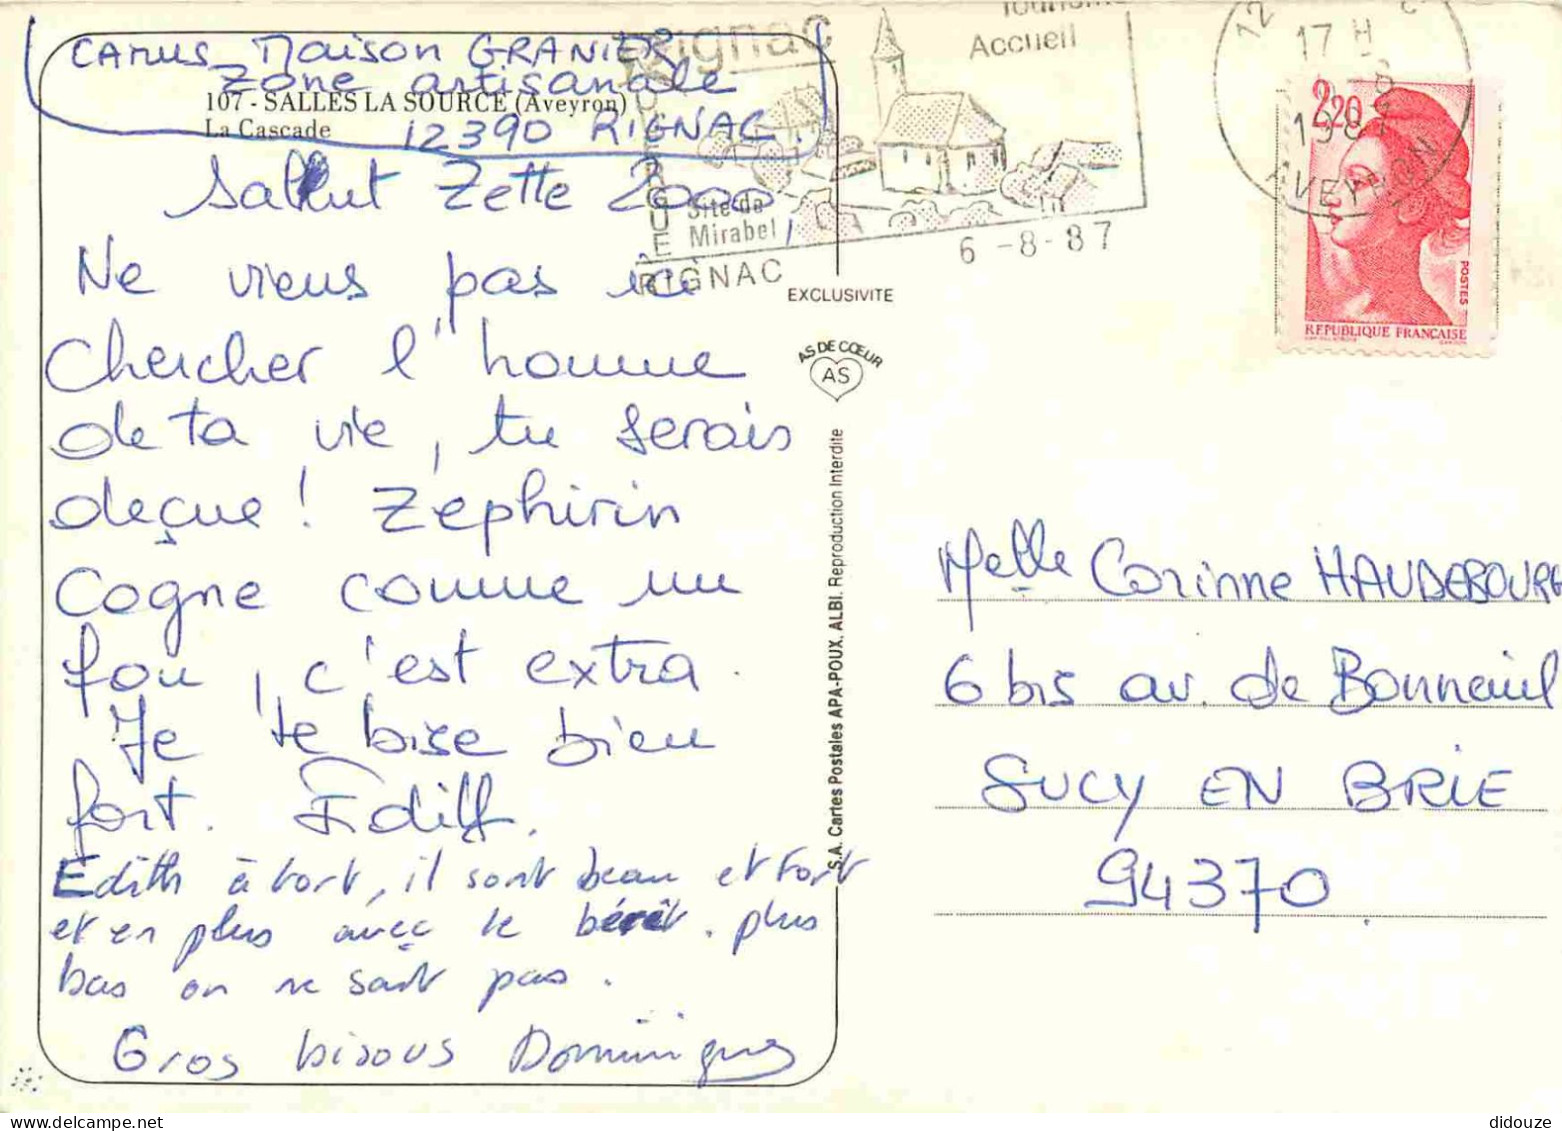 CAMUS Maison GRANIER
Zone artisanale
107 - SALLES LA SOURCE (Aveyron)
La Cascade
12390 RIGNAC.
Sallut Zette 2000,
Ne viens pas ici
chercher l'homme
de ta vie, tu serais
deçue! Zephirin
cogne comme un
fou, c'est extra.
Je te bise bien
fort. Edith.
Edith à tort, il sont beau et fort
et en plus avec le béret. plus
bas on ne sait pas.
Gros bisous Dominique
Rignac
Tourisme
Accueil
ROUERGUE
Site de
Mirabel
RIGNAC
6-8-87
12
17 H
6-8
1987
AVEYRON
2,20
POSTES
REPUBLIQUE FRANÇAISE
EXCLUSIVITE
AS DE CŒUR
AS
S.A. Cartes Postales APA-POUX, ALBI. Reproduction Interdite
Melle Corinne HAUDEBOURG
6 bis av. de Bonneuil
SUCY EN BRIE
94370
didouze